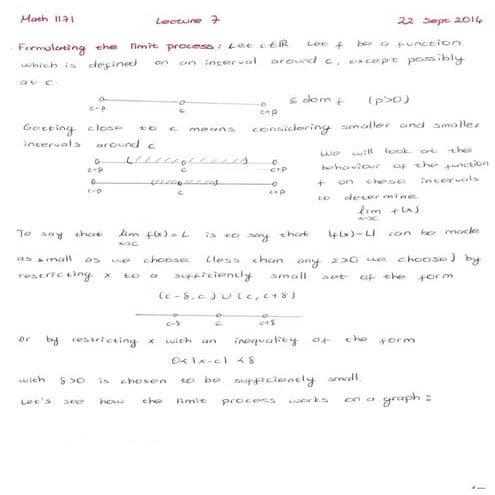 Math 1171 Lecture 7 22 Sept 2014
Formulating the limit process: Let c∈ℝ. Let f be a function
which is defined on an interval around c, except possibly
at c.
c-p c c+p ⊆ dom f (p>0)
Getting close to c means considering smaller and smaller
intervals around c
c-p c c+p
c-p c c+p
We will look at the
behaviour of the function
f on these intervals
to determine
lim f(x)
x→c
To say that lim f(x)=L is to say that |f(x)-L| can be made
x→c
as small as we choose (less than any ε>0 we choose) by
restricting x to a sufficiently small set of the form
(c-δ,c) ∪ (c,c+δ)
c-δ c c+δ
or by restricting x with an inequality of the form
0<|x-c|<δ
with δ>0 is chosen to be sufficiently small.
Let's see how the limit process works on a graph: